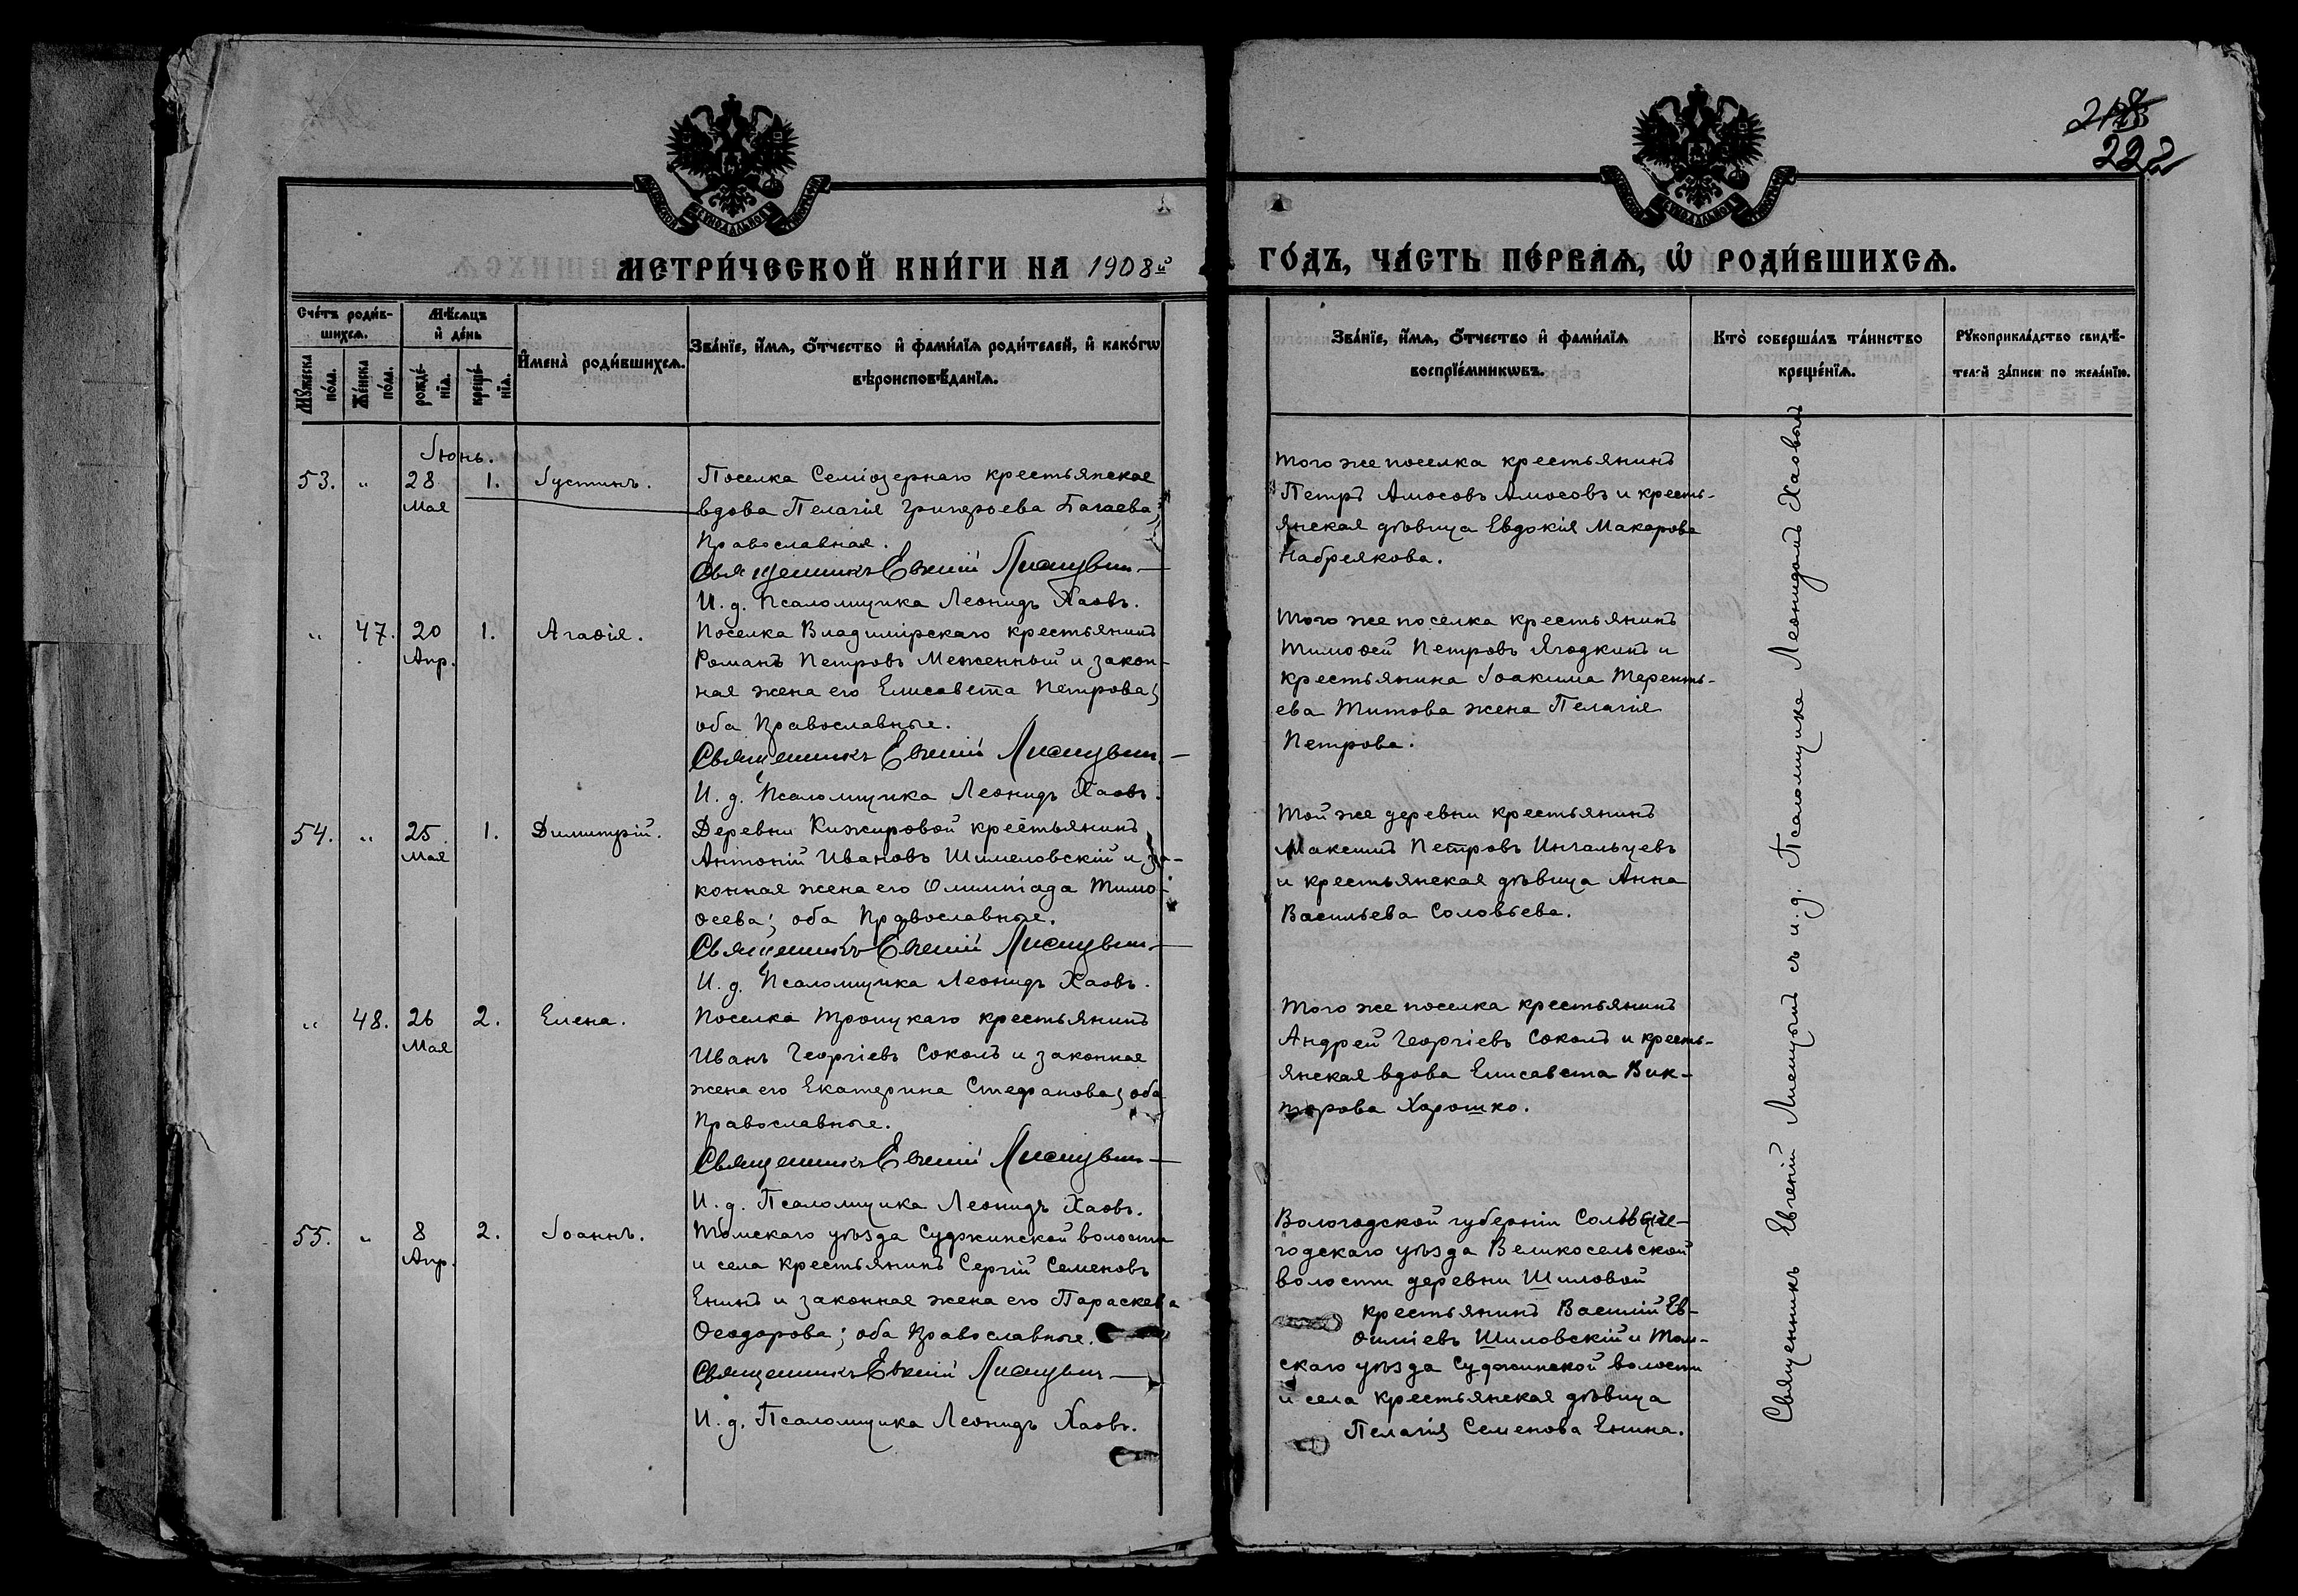 218
222
МЕТРИ́ЧЕСКОЙ КНИ́ГИ НА 1908й ГО́ДЪ, ЧА́СТЬ ПЕ́РВАѦ, Ѡ҆ РОДИ́ВШИХСѦ.
Сче́тъ роди́в-
шихсѧ.
Мꙋ́жеска по́ла.
Же́нска по́ла.
Мѣ́сѧцъ
и҆ де́нь
рожде́-
нїѧ.
креще́-
нїѧ.
И҆мена̀ роди́вшихсѧ.
Зва́нїе, и҆́мѧ, ѻ҆́тчество и҆ фами́лїѧ роди́телей, и҆ како́гѡ
вѣроисповѣ́данїѧ.
Зва́нїе, и҆́мѧ, ѻ҆́тчество и҆ фами́лїѧ
воспрїе́мникѡвъ.
Кто̀ соверша́лъ та́инство
креще́нїѧ.
Рꙋкоприкла́дство свидѣ́-
телей за́писи по жела́нїю.
Іюнь.
53. " 28 Мая 1. Іустинъ.
Поселка Семіозернаго крестьянская
вдова Пелагія Григорьева Багаева;
Православная.
Священникъ Евгеній
И. д. Псаломщика Леонидъ Хаовъ.
Того же поселка крестьянинъ
Петръ Амосовъ Амосовъ и кресть-
янская дѣвица Евдокія Макарова
Набреякова.
" 47. 20 Апр. 1. Агаѳія.
Поселка Владимірскаго крестьянинъ
Романъ Петровъ Меженный и закон-
ная жена его Елисавета Петрова;
оба Православные.
Священникъ Евгеній
И. д. Псаломщика Леонидъ Хаовъ.
Того же поселка крестьянинъ
Тимоѳей Петровъ Ягодкинъ и
крестьянина Іоакима Теренть-
ева Титова жена Пелагія
Петрова.
54. " 25 Мая 1. Димитрій.
Деревни Кижировой крестьянинъ
Антоній Ивановъ Шимеловскій и за-
конная жена его Олимпіада Тимо-
ѳеева; оба Православные.
Священникъ Евгеній
И. д. Псаломщика Леонидъ Хаовъ.
Той же деревни крестьянинъ
Максимъ Петровъ Ингальцевъ
и крестьянская дѣвица Анна
Васильева Соловьева.
" 48. 26 Мая 2. Елена.
Поселка Троицкаго крестьянинъ
Иванъ Георгіевъ Соколъ и законная
жена его Екатерина Стефанова; оба
Православные.
Священникъ Евгеній
И. д. Псаломщика Леонидъ Хаовъ.
Того же поселка крестьянинъ
Андрей Георгіевъ Соколъ и кресть-
янская вдова Елисавета Вик-
торова Харошко.
55. " 8 Апр. 2. Іоаннъ.
Томскаго уѣзда Суджинской волости
и села крестьянинъ Сергій Семеновъ
Енинъ и законная жена его Параскева
Ѳеодорова; оба Православные.
Священникъ Евгеній
И. д. Псаломщика Леонидъ Хаовъ.
Вологодской губерніи Сольвыче-
годскаго уѣзда Великосельской
волости деревни Шиловой
крестьянинъ Василій Ев-
ѳиміевъ Шиловскій и Том-
скаго уѣзда Суджинской волости
и села крестьянская дѣвица
Пелагія Семенова Енина.
Священникъ Евгеній съ и. д. Псаломщика Леонидомъ Хаовымъ